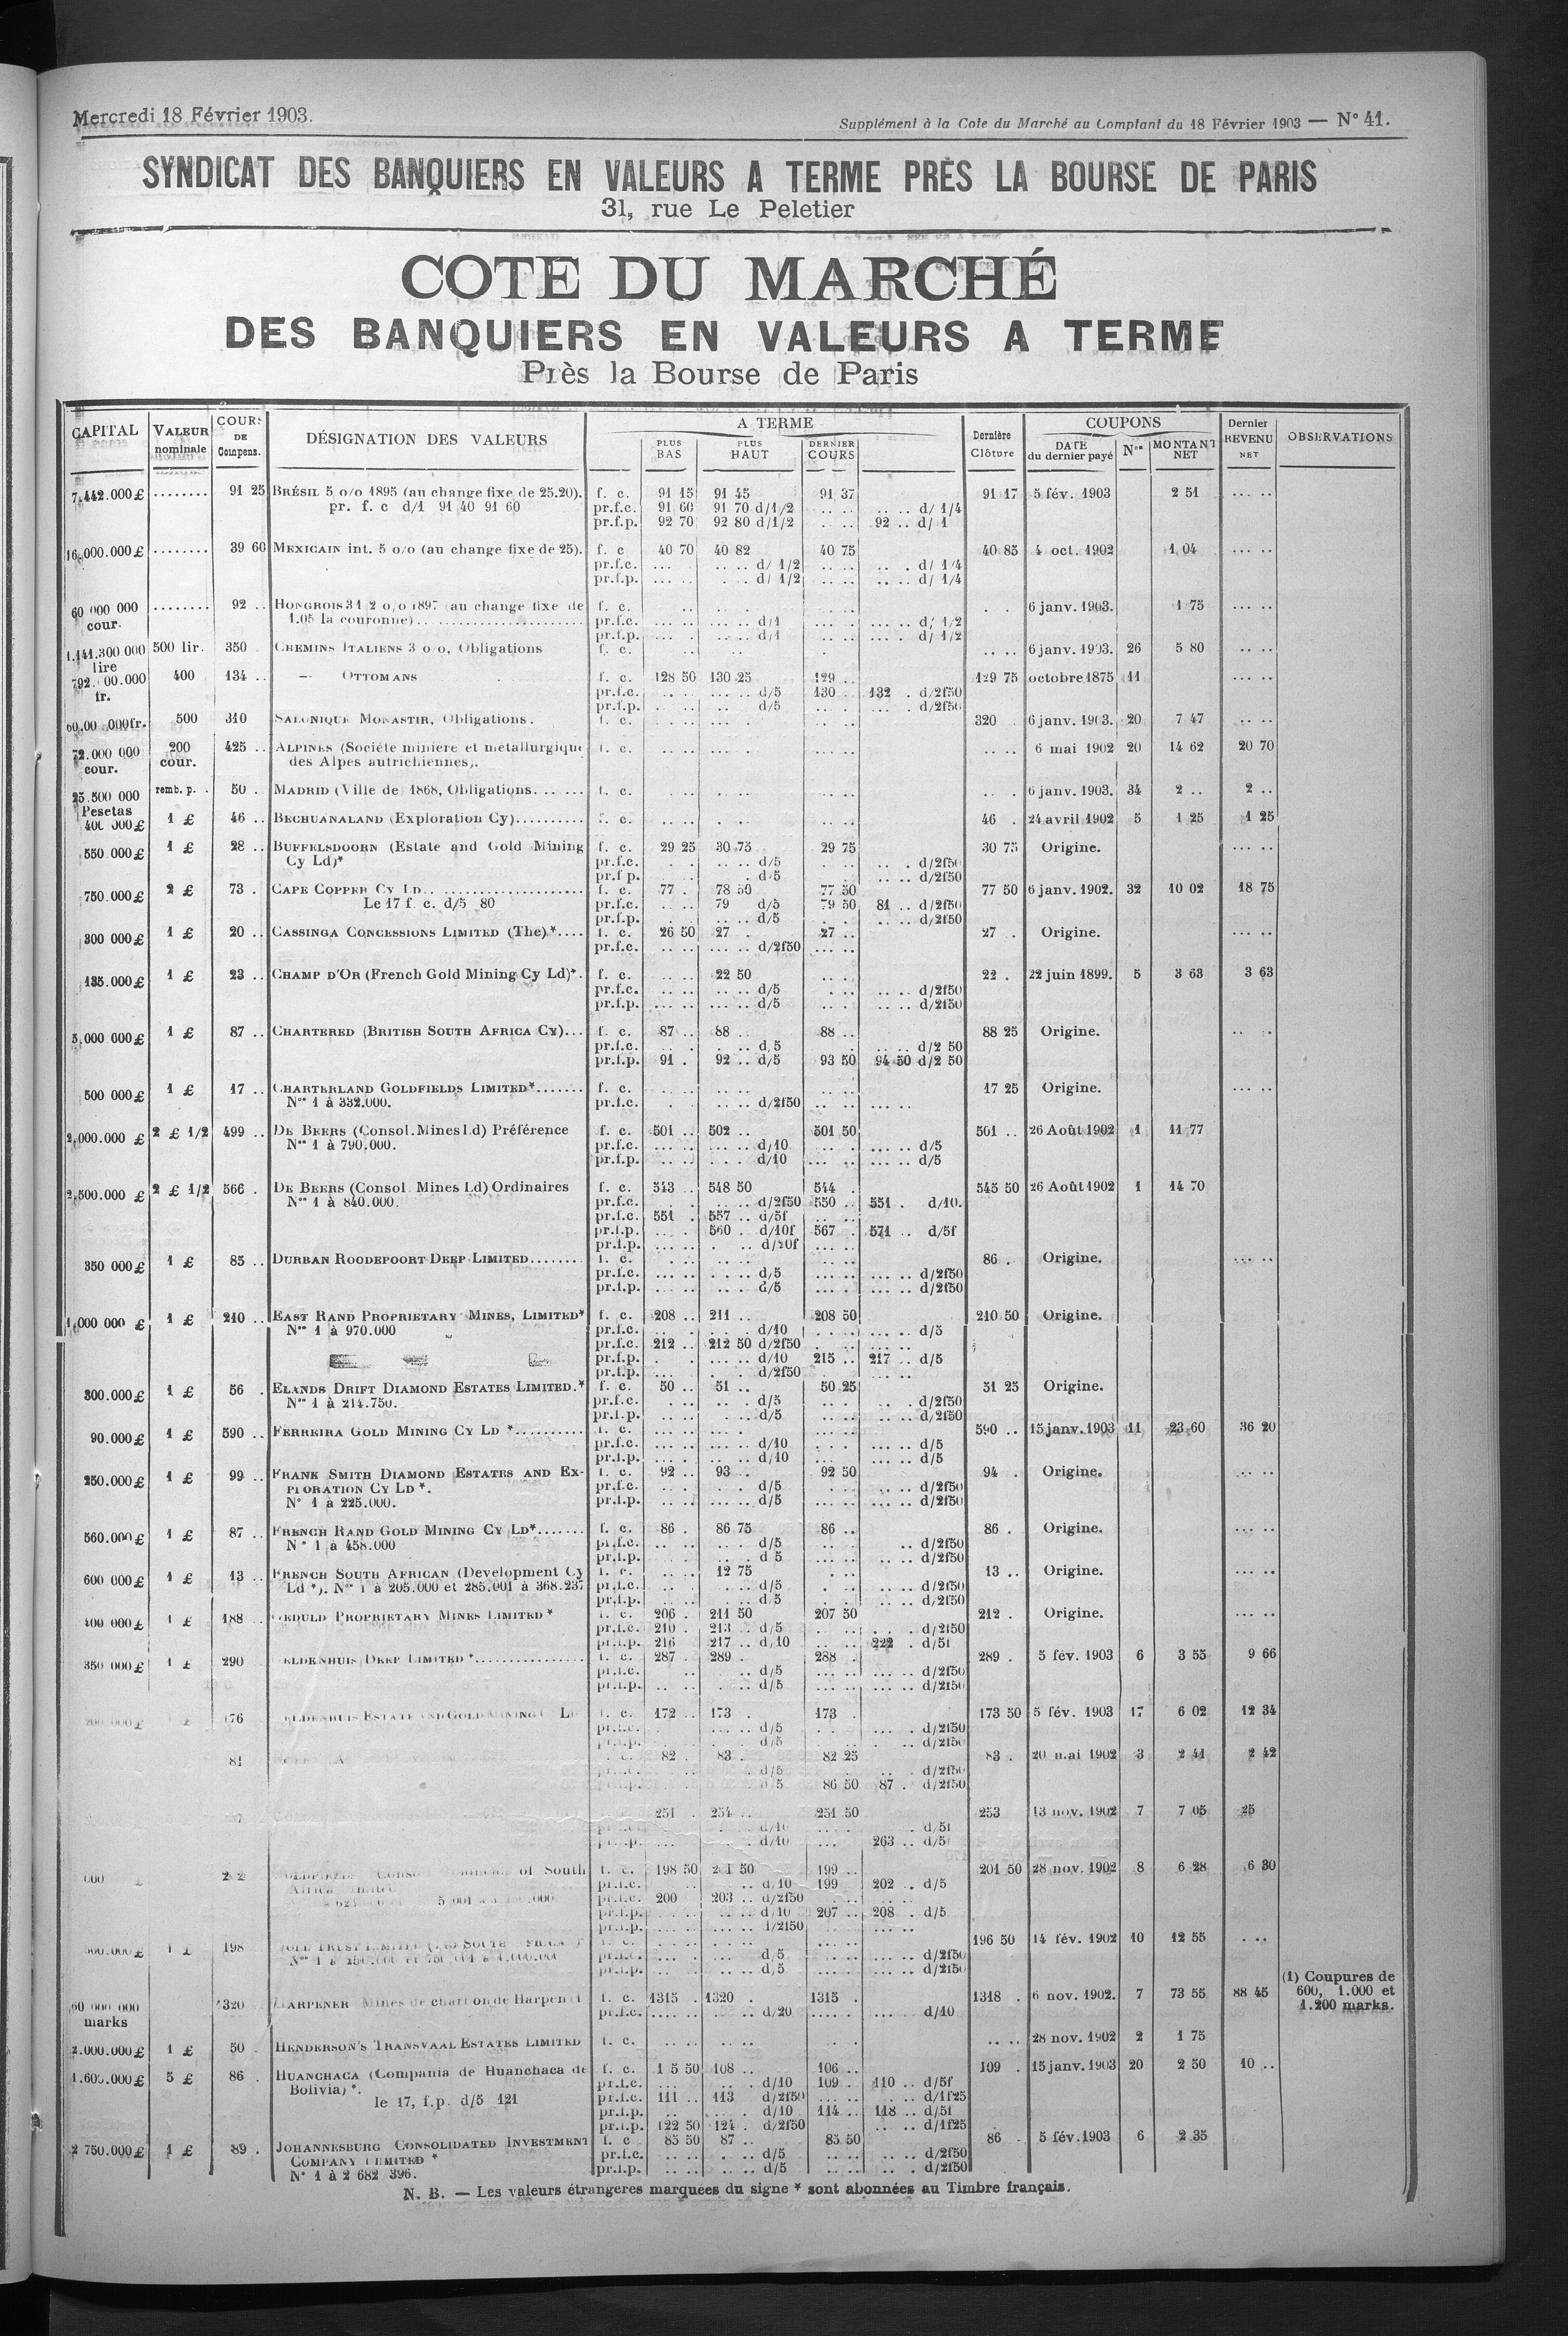 Mercredi 18 Février 1903.
Supplément à la Cote du Marché au Comptant du 18 Février 1903 — N° 41.
SYNDICAT DES BANQUIERS EN VALEURS A TERME PRÈS LA BOURSE DE PARIS
31, rue Le Peletier
COTE DU MARCHÉ
DES BANQUIERS EN VALEURS A TERME
Près la Bourse de Paris
CAPITAL VALEUR nominale COURS DE Compens. DÉSIGNATION DES VALEURS A TERME PLUS BAS PLUS HAUT DERNIER COURS Dernière Clôture COUPONS DATE du dernier payé Nos MONTANT NET Dernier REVENU NET OBSERVATIONS
7.442.000 £ ........ 91 25 BRÉSIL 5 o/o 1895 (au change fixe de 25.20). f. c. 91 15 91 45 91 37 91 17 5 fév. 1903 2 51 ... ..
pr. f. c d/1 91 40 91 60 pr.f.c. 91 60 91 70 d/1/2 .. .. .. .. d/ 1/4
pr.f.p. 92 70 92 80 d/1/2 .. .. 92 .. d/ 1
16.000.000 £ ........ 39 60 MEXICAIN int. 5 o/o (au change fixe de 25). f. c 40 70 40 82 40 75 40 85 4 oct. 1902 1 04 ... ..
pr.f.c. ... .. .. d/ 1/2 .. .. .. . d/ 1/4
pr.f.p. ... .. . .. d/ 1/2 .. .. .. .. d/ 1/4
60 000 000 cour. ........ 92 .. HONGROIS 3 1/2 o/o 1897 (au change fixe de f. c. 6 janv. 1903. 1 75 ... ..
1.05 la couronne) pr.f.c. d/1 d/ 1/2
pr.f.p. d/1 d/ 1/2
1.141.300.000 lire 500 lir. 350 . CHEMINS ITALIENS 3 o/o, Obligations f. c. 6 janv. 1903. 26 5 80 .. ..
792. 00.000 fr. 400 134 .. — OTTOMANS f. c. 128 50 130 25 129 .. 129 75 octobre 1875 11 ... ..
pr.f.c. d/5 130 . 132 . d/2f50
pr.f.p. d/5 d/2f50
60,00 .000fr. 500 310 SALONIQUE MONASTIR, Obligations. f. c. 320 . 6 janv. 1903. 20 7 47 .. ..
72.000 000 cour. 200 cour. 425 .. ALPINES (Société minière et métallurgique f. c. 6 mai 1902 20 14 62 20 70
des Alpes autrichiennes).
25.500 000 Pesetas remb. p. . 50 . MADRID (Ville de) 1868, Obligations. f. c. 6 janv. 1903. 34 2 .. 2 ..
400 000 £ 1 £ 46 .. BECHUANALAND (Exploration Cy) f. c. 46 . 24 avril 1902 5 1 25 1 25
550 000 £ 1 £ 28 .. BUFFELSDOORN (Estate and Gold Mining f. c. 29 25 30 75 29 75 30 75 Origine. ... ..
Cy Ld)* pr.f.c. d/5 d/2f50
pr.f p. d/5 d/2f50
750.000 £ 2 £ 73 . CAPE COPPER Cy LD f. c. 77 . 78 50 77 50 77 50 6 janv. 1902. 32 10 02 18 75
Le 17 f. c. d/5 80 pr.f.c. 79 d/5 79 50 81 .. d/2f50
pr.f.p. d/5 d/2f50
300 000 £ 1 £ 20 .. CASSINGA CONCESSIONS LIMITED (The)* f. c. 26 50 27 . 27 .. 27 . Origine. ... ..
pr.f.c. d/2f50
135.000 £ 1 £ 23 .. CHAMP D'OR (French Gold Mining Cy Ld)*. f. c. 22 50 22 . 22 juin 1899. 5 3 63 3 63
pr.f.c. d/5 d/2f50
pr.f.p. d/5 d/2f50
5.000 000 £ 1 £ 87 .. CHARTERED (BRITISH SOUTH AFRICA Cy)... f. c. 87 .. 88 .. 88 .. 88 25 Origine.
pr.f.c. d/5 d/2 50
pr.f.p. 91 . 92 .. d/5 93 50 94 50 d/2 50
500 000 £ 1 £ 17 .. CHARTERLAND GOLDFIELDS LIMITED* f. c. 17 25 Origine. ... ..
Nos 1 à 332.000. pr.f.c. d/2f50
2.000.000 £ 2 £ 1/2 499 .. DE BEERS (Consol. Mines Ld) Préférence f. c. 501 .. 502 .. 501 50 501 .. 26 Août 1902 1 11 77
Nos 1 à 790.000. pr.f.c. d/10 d/5
pr.f.p. d/10 d/5
2.500.000 £ 2 £ 1/2 566 . DE BEERS (Consol. Mines Ld) Ordinaires f. c. 543 .. 548 50 544 . 545 50 26 Août 1902 1 14 70
Nos 1 à 840.000. pr.f.c. d/2f50 550 .. 551 . d/10.
pr.f.c. 551 . 557 .. d/5f
pr.f.p. 560 . d/10f 567 . 571 .. d/5f
pr.f.p. d/20f
350 000 £ 1 £ 85 .. DURBAN ROODEPOORT DEEP LIMITED f. c. 86 . Origine. ... ..
pr.f.c. d/5 d/2f50
pr.f.p. d/5 d/2f50
1.000 000 £ 1 £ 210 .. EAST RAND PROPRIETARY MINES, LIMITED* f. c. 208 .. 211 .. 208 50 210 50 Origine.
Nos 1 à 970.000 pr.f.c. d/10 d/5
pr.f.c. 212 .. 212 50 d/2f50
pr.f.p. d/10 215 .. 217 .. d/5
pr.f.p. d/2f50
300.000 £ 1 £ 56 . ELANDS DRIFT DIAMOND ESTATES LIMITED.* f. c. 50 .. 51 .. 50 25 51 25 Origine.
Nos 1 à 214.750. pr.f.c. d/5 d/2f50
pr.f.p. d/5 d/2f50
90.000 £ 1 £ 590 .. FERREIRA GOLD MINING CY LD * f. c. 590 .. 15 janv. 1903 11 23 60 36 20
pr.f.c. d/10 d/5
pr.f.p. d/10 d/5
250.000 £ 1 £ 99 .. FRANK SMITH DIAMOND ESTATES AND EX- f. c. 92 .. 93 . 92 50 94 . Origine. ... ..
PLORATION CY LD *. pr.f.c. d/5 d/2f50
N° 1 à 225.000. pr.f.p. d/5 d/2f50
560.000 £ 1 £ 87 .. FRENCH RAND GOLD MINING CY LD* f. c. 86 . 86 75 86 .. 86 . Origine. ... ..
N° 1 à 458.000 pr.f.c. d/5 d/2f50
pr.f.p. d 5 d/2f50
600 000 £ 1 £ 13 .. FRENCH SOUTH AFRICAN (Development Cy f. c. 12 75 13 .. Origine. ... ..
Ld *). Nos 1 à 205.000 et 285.001 à 368.237 pr.f.c. d/5 d/2f50
pr.f.p. d/5 d/2f50
400 000 £ 1 £ 188 GEDULD PROPRIETARY MINES LIMITED * f. c. 206 . 211 50 207 50 212 . Origine. ... ..
pr.f.c. 210 . 213 .. d/5 d/2f50
pr.f.p. 216 217 .. d/10 222 . d/5f
350 000 £ 1 £ 290 ELDENHUIS DEEP LIMITED * f. c. 287 . 289 . 288 . 289 . 5 fév. 1903 6 3 55 9 66
pr.f.c. d/5 d/2f50
pr.f.p. d/5 d/2f50
176 ELDENHUIS ESTATE AND GOLD MINING f. c. 172 .. 173 . 173 . 173 50 5 fév. 1903 17 6 02 12 34
pr.f.c. d/5 d/2f50
pr.f.p. d/5 d/2f50
81 82 . 83 . 82 25 83 . 20 mai 1902 3 2 41 2 42
d/5 d/2f50
d/5 86 50 87 . d/2f50
251 . 254 .. 251 50 253 13 nov. 1902 7 7 05 25
d/10 d/5f
d/10 263 .. d/5f
of South f. c. 198 50 50 199 .. 201 50 28 nov. 1902 8 6 28 6 30
pr.f.c. d/10 199 202 .. d/5
pr.f.c. 200 203 .. d/2f50
pr.f.p. d/10 207 .. 208 . d/5
pr.f.p. d/2f50
1 £ 198 196 50 14 fév. 1902 10 12 55
pr.f.c. d/5 d/2f50
pr.f.p. d/5 d/2f50
60 000 000 marks 1320 HARPENER Mines de charbon de Harpen f. c. 1315 . 1320 . 1315 . 1318 . 6 nov. 1902. 7 73 55 88 45 (1) Coupures de 600, 1.000 et 1.200 marks.
pr.f.c. d/20 d/10
2.000.000 £ 1 £ 50 . HENDERSON'S TRANSVAAL ESTATES LIMITED f. c. 28 nov. 1902 2 1 75
1.600.000 £ 5 £ 86 . HUANCHACA (Compania de Huanchaca de f. c. 1 5 50 108 .. 106 .. 109 . 15 janv. 1903 20 2 50 10 ..
Bolivia) *. pr.f.c. d/10 109 . 110 .. d/5f
le 17, f.p. d/5 121 pr.f.c. 111 .. 113 d/2f50 d/1f25
pr.f.p. d/10 114 .. 118 .. d/5f
pr.f.p. 122 50 124 . d/2f50 d/1f25
2 750.000 £ 1 £ 89 . JOHANNESBURG CONSOLIDATED INVESTMENT f. c 85 50 87 .. 85 50 86 . 5 fév. 1903 6 2 35
COMPANY LIMITED * pr.f.c. d/5 d/2f50
N° 1 à 2 682 396. pr.f.p. d/5 d/2f50
N. B. — Les valeurs étrangères marquées du signe * sont abonnées au Timbre français.